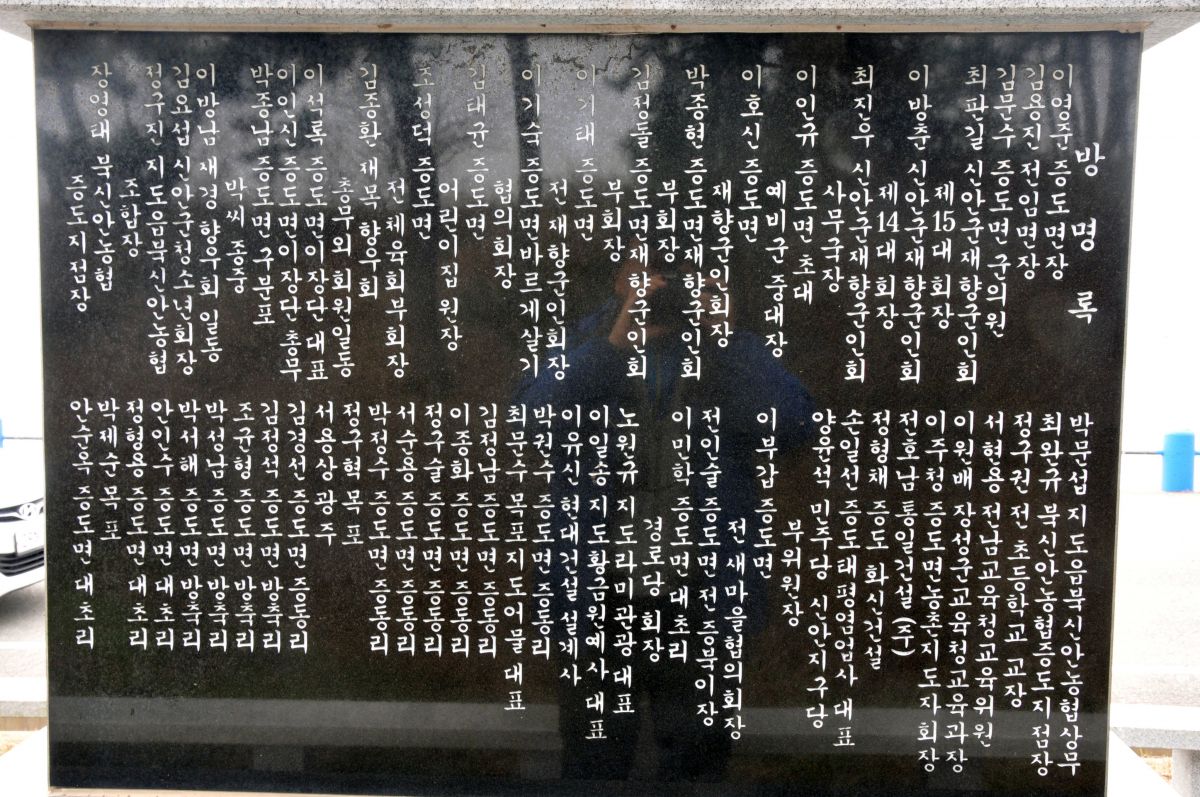 방명록
이영준 증도면장
김용진 전임면장
김문수 증도면 군의원
최판길 신안군재향군인회
제15대 회장
이방춘 신안군재향군인회
제14대 회장
최진우 신안군재향군인회
사무국장
이인규 증도면 초대
예비군 중대장
이호신 증도면
재향군인회장
박종현 증도면재향군인회
부회장
김정돌 증도면재향군인회
부회장
이기태 증도면
전 재향군인회장
이기숙 증도면바르게살기
협의회장
김태균 증도면
어린이집 원장
조성덕 증도면
전 체육회부회장
김종환 재목 향우회
총무외 회원일동
이석록 증도면이장단 대표
이인신 증도면이장단 총무
박종남 증도면 구분포
박씨 종중
이방남 재경 향우회 일동
김요섭 신안군청소년회장
정구진 지도읍북신안농협
조합장
장영태 북신안농협
증도지점장
박문섭 지도읍북신안농협상무
최완규 북신안농협증도지점장
정구권 전 초등학교 교장
서현용 전남교육청교육위원
이원배 장성군교육청교육과장
이주청 증도면농촌지도자회장
전호남 통일건설(주)
정형채 증도 화신건설
손일선 증도태평염업사 대표
양윤석 민주당 신안지구당
부위원장
이부갑 증도면
전 새마을협의회장
전인술 증도면 전 증북이장
이민학 증도면 대초리
경로당 회장
노원규 지도라미관광 대표
이일송 지도황금원예사 대표
이유신 현대건설 설계사
박권수 증도면 증동리
최문수 목포지도어물 대표
김정남 증도면 증동리
이종화 증도면 증동리
정구술 증도면 증동리
서순용 증도면 증동리
박정수 증도면 증동리
정구혁 목포
서용상 광주
김경선 증도면 증동리
김정석 증도면 방축리
조균형 증도면 방축리
박성남 증도면 방축리
박서해 증도면 방축리
안인수 증도면 대초리
정형용 증도면 대초리
박제순 목포
안순옥 증도면 대초리